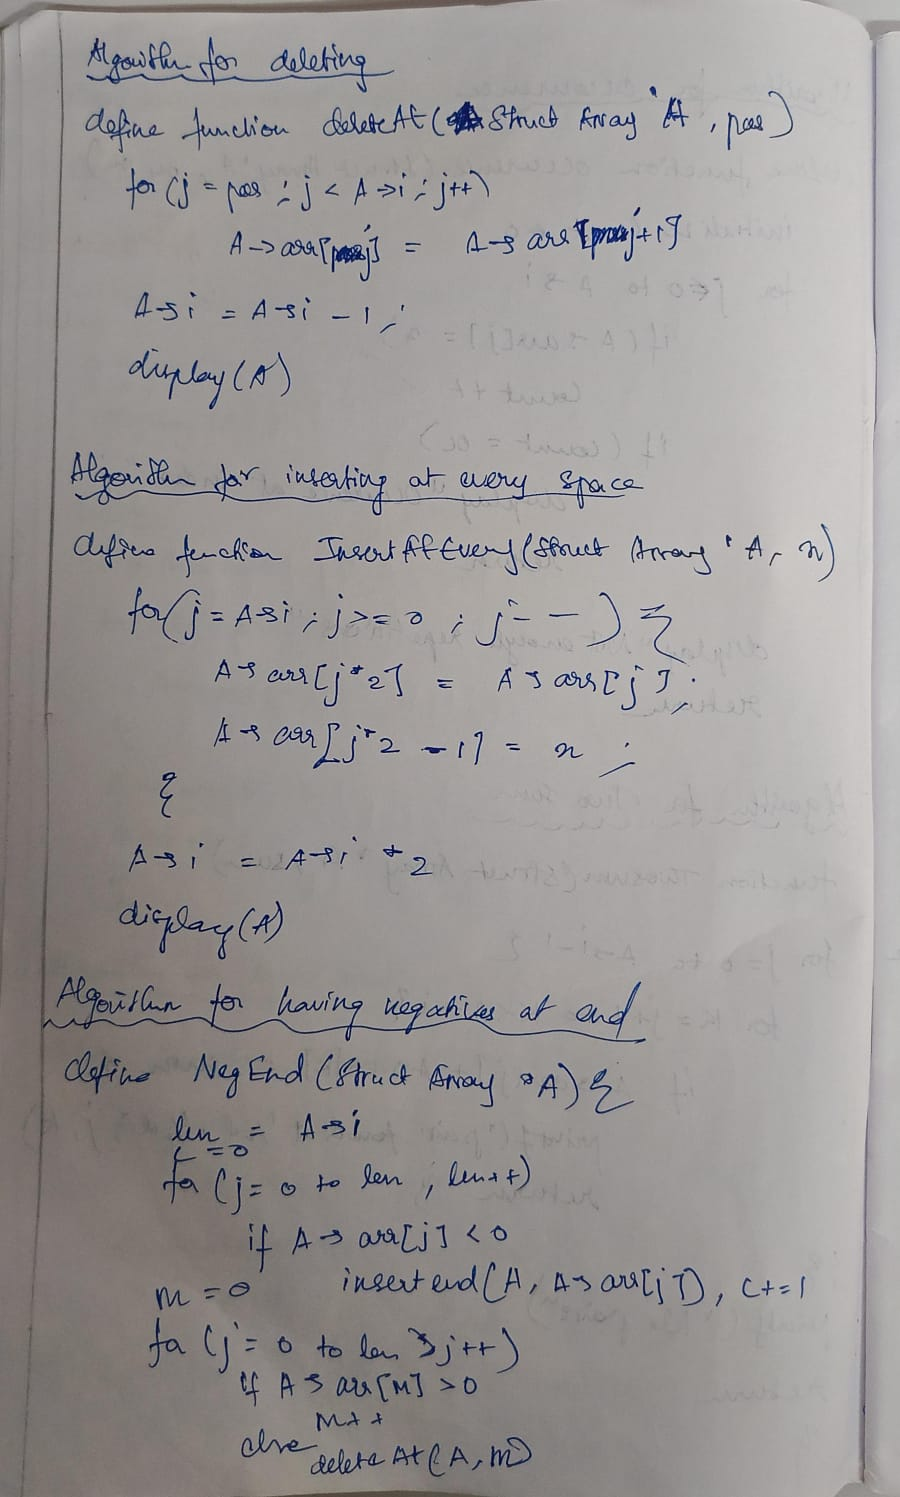 Algorithm for deleting
define function deleteAt ( Struct Array * A , pos )
for (j = pos ; j < A->i ; j++)
A->arr[j] = A->arr[j+1]
A->i = A->i - 1 ;
display (A)
Algorithm for inserting at every space
define function InsertAtEvery (Struct Array * A, x)
for (j = A->i ; j >= 0 ; j--) {
A->arr[j*2] = A->arr[j] ;
A->arr[j*2 - 1] = x ;
}
A->i = A->i * 2
display (A)
Algorithm for having negatives at end
define NegEnd (Struct Array *A) {
len = A->i
c = 0
for (j = 0 to len , len++)
if A->arr[j] < 0
insert end (A, A->arr[j]), c+=1
m = 0
for (j = 0 to len ; j++)
if A->arr[m] > 0
m++
else
delete At (A, m)